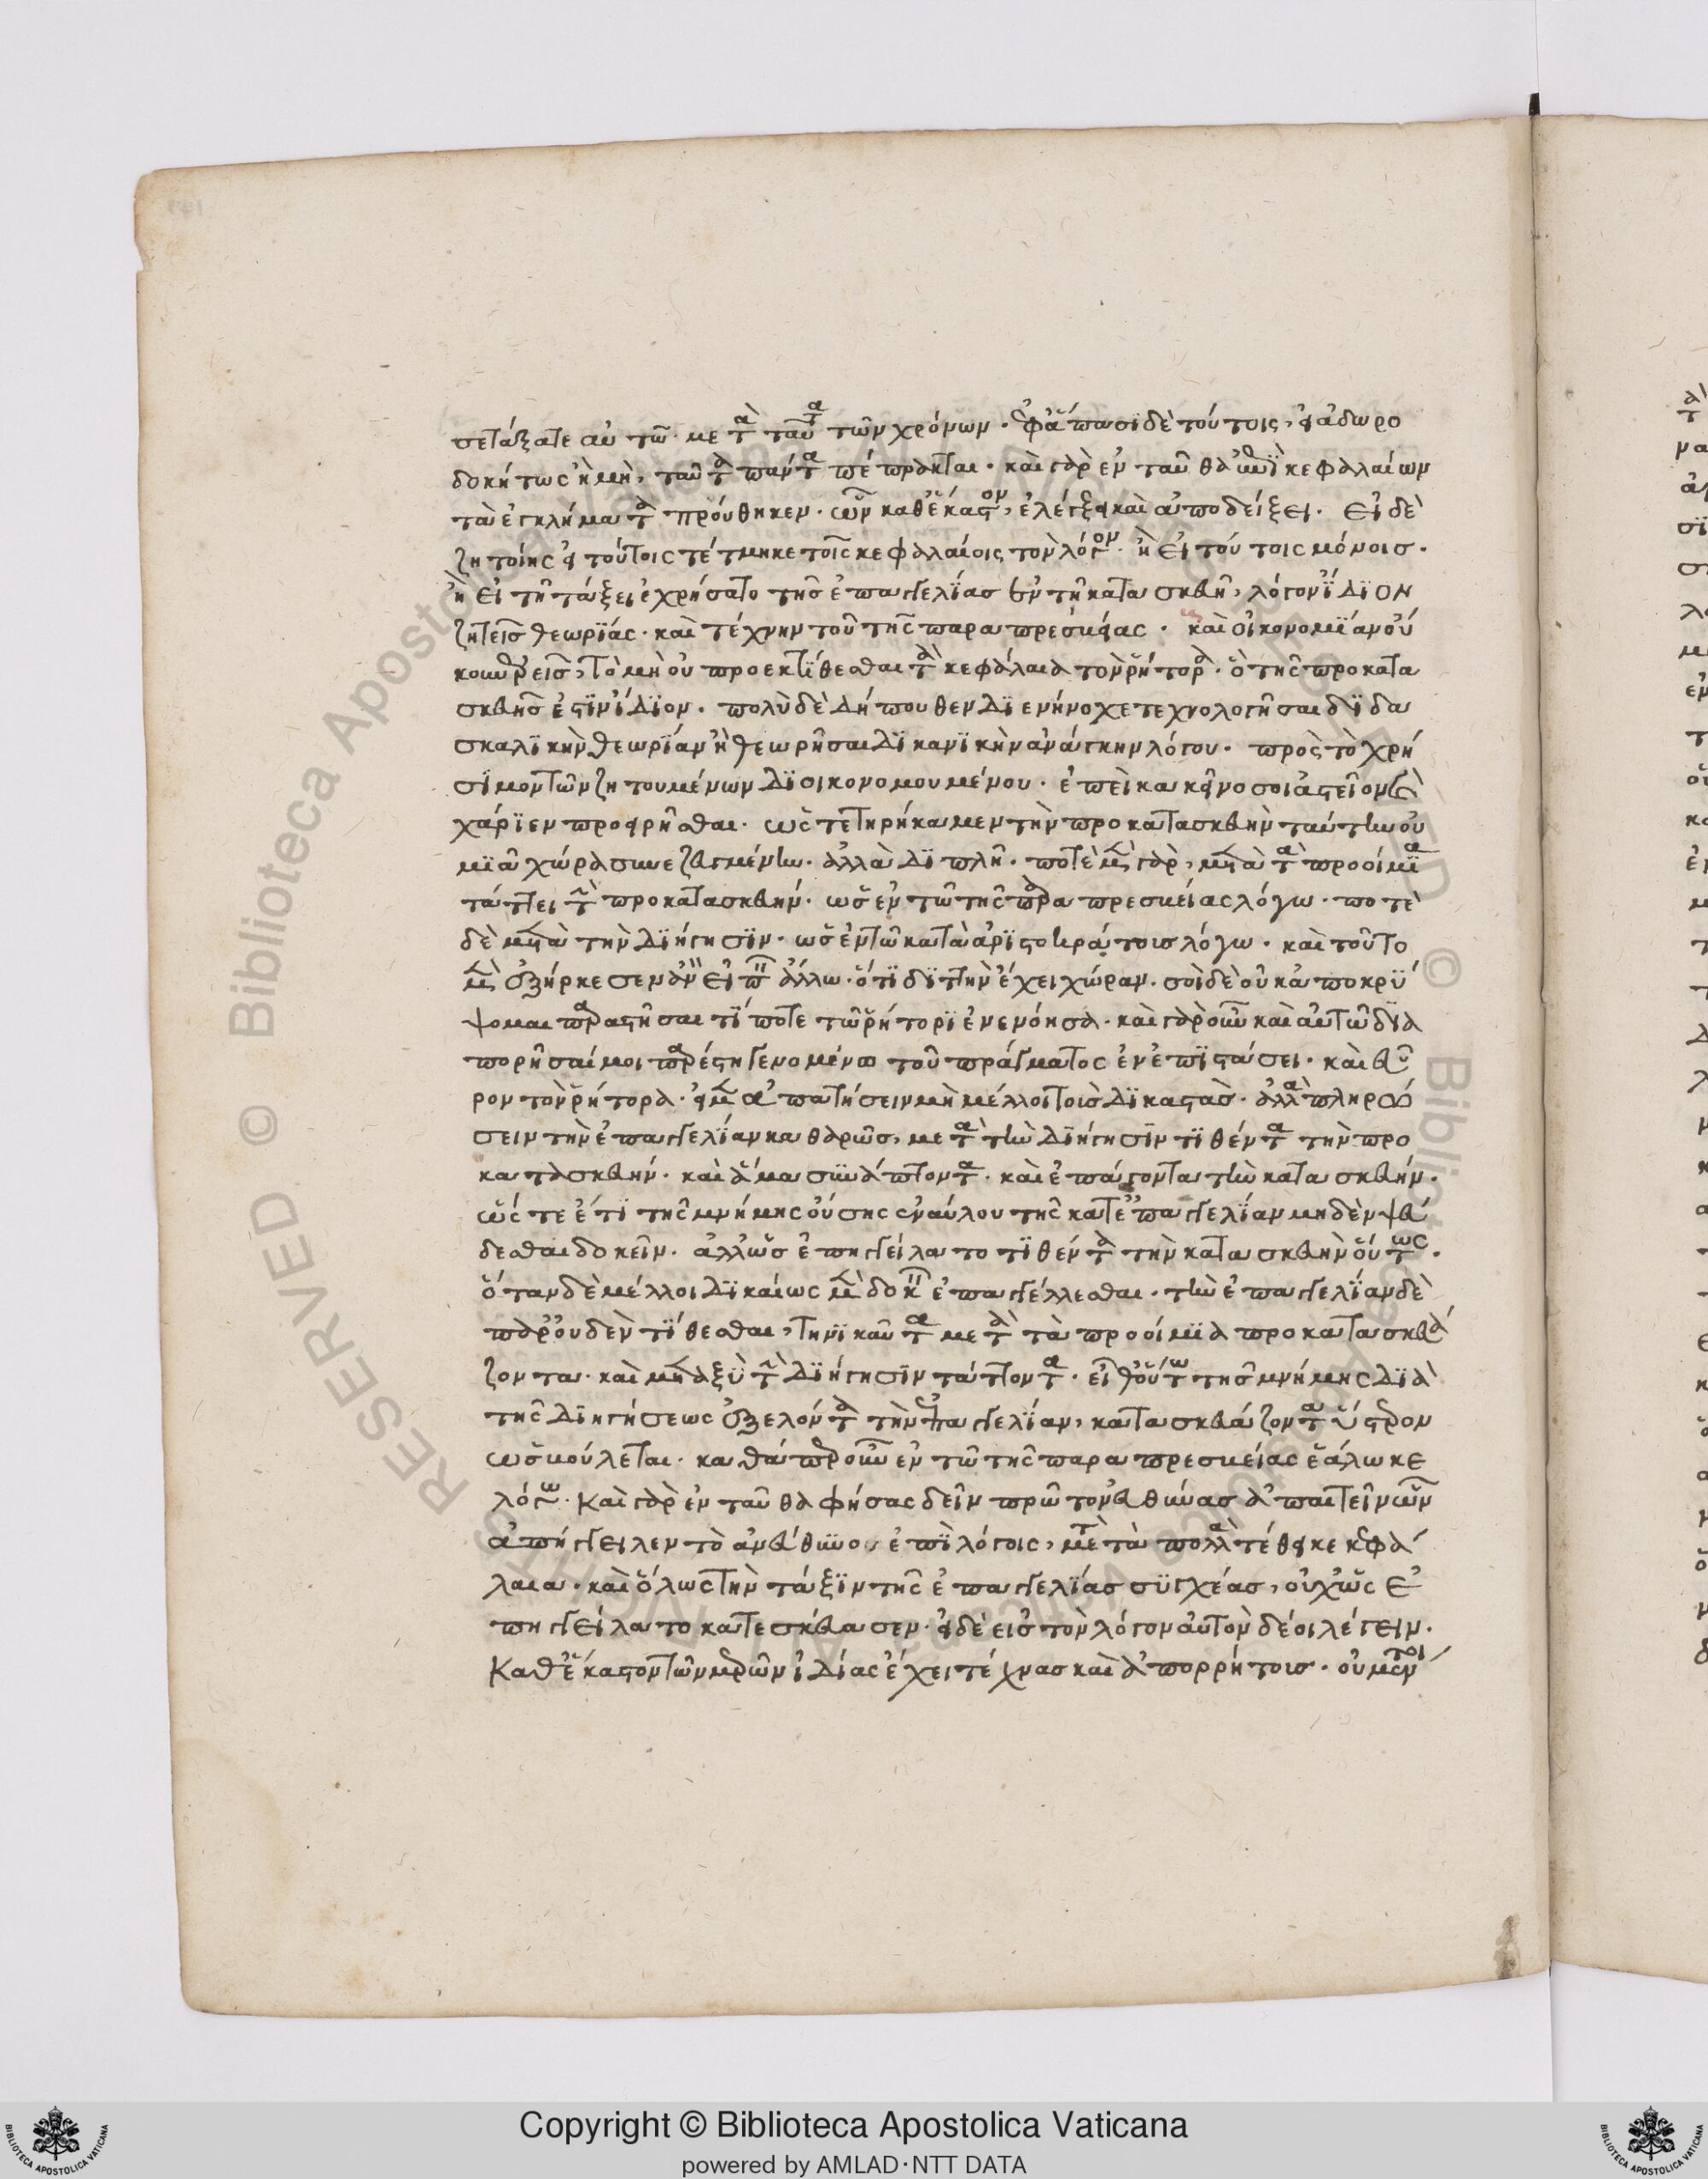 σετάξατε αὐτῶ· μετὰ ταῦτα τῶν χρόνων· ἐφ ἅπασι δὲ τούτοις, εἰ ἀδωρο
δοκήτως ἢ μὴ, ταῦτα πάντα πέπρακται· καὶ γὰρ ἐν ταῦθα κεφαλαίων
τὰ ἐγκλήματα προὔθηκεν· ὧν καθ ἕκαστον, ἐλέγξει καὶ ἀποδείξει. Εἰ δὲ
ζητοίης εἰ τούτοις τέτμηκε τοῖς κεφαλαίοις τὸν λόγον· ἢ εἰ τούτοις μόνοις.
ἢ εἰ τῆ τάξει ἐχρήσατο τῆς ἐπαγγελίας ἐν τῆ κατασκευῆ, λόγον ἴδιον
ζητεῖς θεωρίας· καὶ τέχνην τοῦ τῆς παραπρεσβείας· καὶ οἰκονομίαν οὐ
κοινὸν εἰς, τὸ μὴ οὐ προεκτίθεσθαι τὰ κεφάλαια τὸν ῥήτορα· ὃ τῆς προκατα
σκευῆς ἐστὶν ἴδιον. πολὺ δὲ δήπουθεν διενήνοχε τεχνολογῆσαι διδα
σκαλικὴν θεωρίαν ἢ θεωρῆσαι δικανικὴν ἀνάγκην λόγου· πρὸς τὸ χρή
σιμον τῶν ζητουμένων διοικονομουμένου· ἐπεὶ κακεῖνό σοι ἀστεῖον καὶ
χάριεν προειρῆσθαι· ὡς τετηρήκαμεν τὴν προκατασκευὴν ταύτην οὐ
μιᾶ χώρα συνεζευγμένην· ἀλλὰ διπλῆ· ποτὲ μὲν γὰρ, μετὰ τὰ προοίμια
τάττει τὴν προκατασκευήν· ὡς ἐν τῶ τῆς παραπρεσβείας λόγω· ποτὲ
δὲ μετὰ τὴν διήγησιν· ὡς ἐν τῶ κατὰ ἀριστοκράτους λόγω· καὶ τοῦτο
μὲν ἐξήρκεσεν ἂν εἰπεῖν ἄλλω· ὅτι διττὴν ἔχει χώραν. σοὶ δὲ οὐκ ἀποκρύ
ψομαι παραστῆσαι τί ποτε τῶ ῥήτορι ἐνενόησα· καὶ γὰρ οὖν καὶ αὐτῶ δια
πορῆσαί μοι παρέστη γενομένω τοῦ πράγματος ἐν ἐπιστάσει· καὶ εὗ
ρον τὸν ῥήτορα· εἰ μὲν ἀπατήσειν μὴ μέλλοι τοὺς δικαστὰς· ἀλλὰ πληρώ
σειν τὴν ἐπαγγελίαν καθαρῶς, μετὰ τὴν διήγησιν τιθέντα τὴν προ
κατασκευήν· καὶ ἅμα συνάπτοντα· καὶ ἐπάγοντα τὴν κατασκευήν·
ὥς τε ἔτι τῆς μνήμης οὔσης ἐναύλου τῆς κατ ἐπαγγελίαν μηδὲν ψεύ
δεσθαι δοκεῖν· ἀλλ ὡς ἐπηγγείλατο τιθέντα τὴν κατασκευὴν οὕτως·
ὅταν δὲ μέλλοι δικαίως μὲν δοκεῖν ἐπαγγέλλεσθαι· τὴν ἐπαγγελίαν δὲ
παρ οὐδὲν τίθεσθαι, τηνικαῦτα μετὰ τὰ προοίμια προκατασκευά
ζοντα· καὶ μεταξὺ τὴν διήγησιν τάττοντα· εἶθ οὕτω τῆς μνήμης διὰ
τῆς διηγήσεως ἐξελόντα τὴν ἐπαγγελίαν, κατασκευάζοντα ὕστερον
ὡς βούλεται· καθάπερ οὖν ἐν τῶ τῆς παραπρεσβείας ἑάλωκε
λόγω· Καὶ γὰρ ἐν ταῦθα φήσας δεῖν πρῶτον εὐθύνας ἀπαιτεῖν ὧν
ἀπήγγειλεν τὸ ἀνεύθυνον ἐπὶ λόγοις, μετὰ πολλὰ τέθεικε κεφά
λαια· καὶ ὅλως τὴν τάξιν τῆς ἐπαγγελίας συγχέας, οὐχ ὡς ἐ
πηγγείλατο κατεσκεύασεν· εἰ δὲ εἰς τὸν λόγον αὐτὸν δέοι λέγειν·
Καθ ἕκαστον τῶν μερῶν ἰδίας ἔχει τέχνας καὶ ἀπορρήτους· οὐ μέντοι